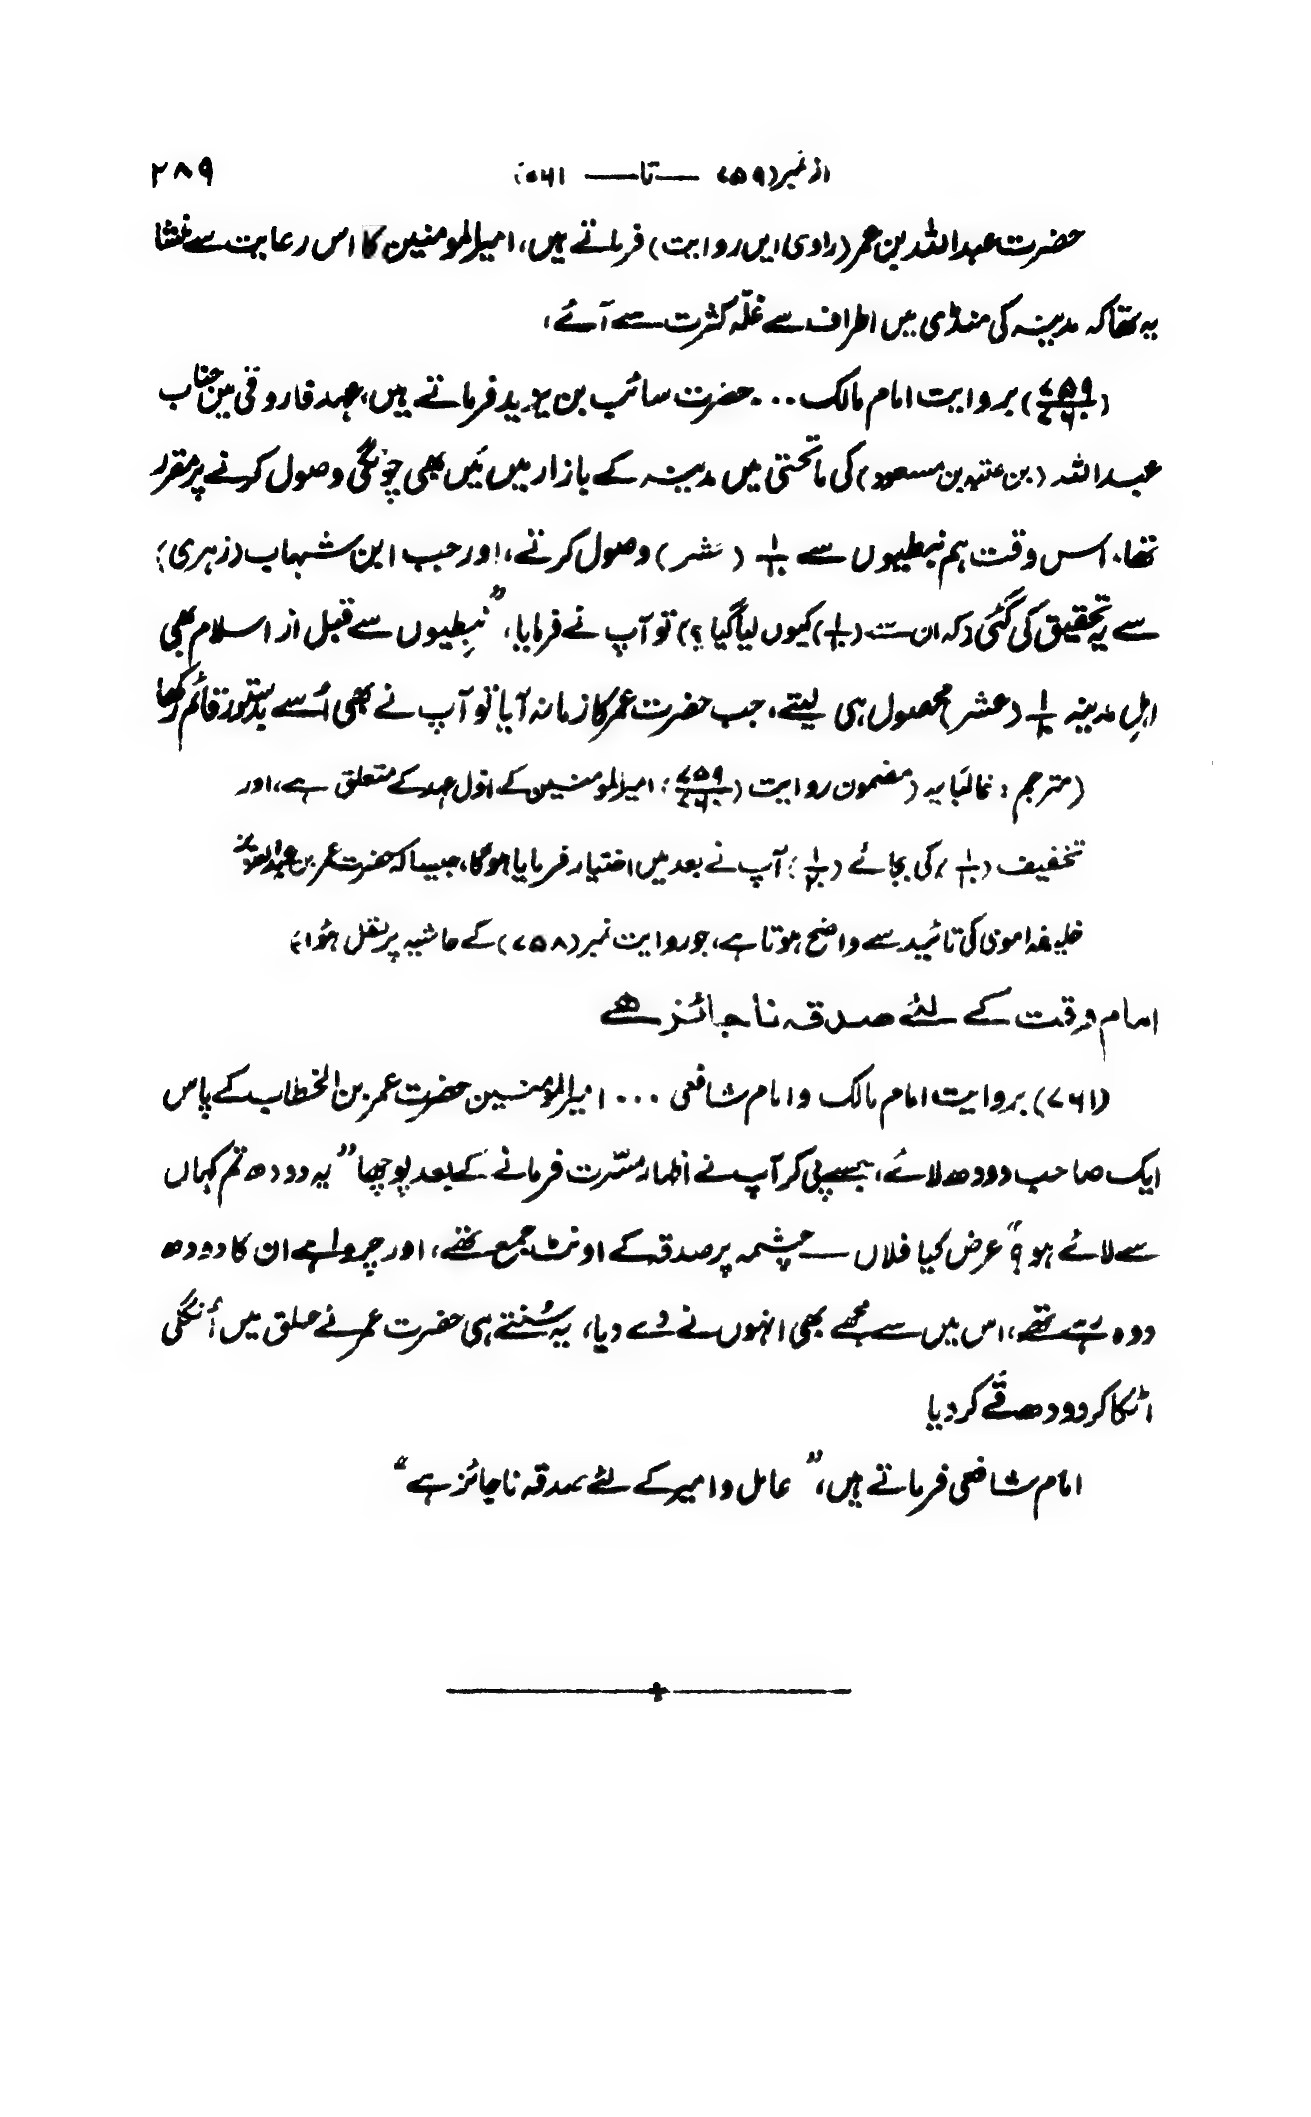 از نمبر (۷۵۹ — تا — ۷۶۱) ۲۸۹
حضرت عبداللہ بن عمر (راوی ایں روایت) فرماتے ہیں، امیرالمومنین کا اس رعایت سے منشا
یہ تھا کہ مدینہ کی منڈی میں اطراف سے غلّہ کثرت سے آئے،
(۷۵۹/۷۶۰) بروایت امام مالک ... حضرت سائب بن یزید فرماتے ہیں، عہد فاروقی میں جناب
عبداللہ (بن عتبہ بن مسعود) کی ماتحتی میں مدینہ کے بازار میں مَیں بھی چونگی وصول کرنے پر مقرر
تھا۔ اس وقت ہم نبطیوں سے ۱/۱۰ (عشر) وصول کرتے، اور جب ابن شہاب (زہری)
سے یہ تحقیق کی گئی (کہ ان سے (۱/۱۰) کیوں لیا گیا ؟) تو آپ نے فرمایا، ”نبطیوں سے قبل از اسلام بھی
اہلِ مدینہ ۱/۱۰ (عشر) محصول ہی لیتے، جب حضرت عمر کا زمانہ آیا تو آپ نے بھی اُسے بدستور قائم رکھا
(مترجم : غالبًا یہ (مضمون روایت (۷۵۹/۷۶۰) امیرالمومنین کے اوّل عہد کے متعلق ہے، اور
تخفیف (۱/۱۰) کی بجائے (۱/۲۰) آپ نے بعد میں اختیار فرمایا ہوگا، جیسا کہ حضرت عمر بن عبدالعزیز
خلیفہ اموی کی تائید سے واضح ہوتا ہے، جو روایت نمبر (۷۵۸) کے حاشیہ پر نقل ہُوا)
امام وقت کے لئے صدقہ ناجائز ھے
(۷۶۱) بروایت امام مالک و امام شافعی ... امیرالمومنین حضرت عمر بن الخطاب کے پاس
ایک صاحب دودھ لائے، جسے پی کر آپ نے اظہار مسّرت فرمانے کے بعد پوچھا ”یہ دودھ تم کہاں
سے لائے ہو؟“ عرض کیا فلاں چشمہ پر صدقہ کے اونٹ جمع تھے، اور چرواہے ان کا دودھ
دوہ رہے تھے، اس میں سے مجھے بھی انہوں نے دے دیا، یہ سُنتے ہی حضرت عمر نے حلق میں اُنگلی
اٹکا کر دودھ قے کر دیا
امام شافعی فرماتے ہیں، ”عامل و امیر کے لئے صدقہ ناجائز ہے“